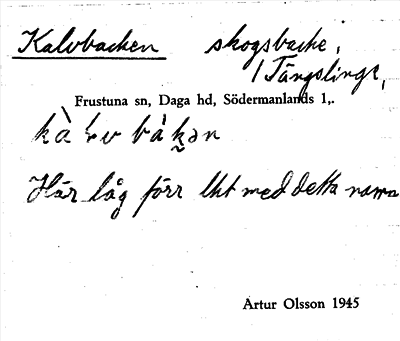 Kalvbacken skogsbacke,
/ Tängslinge,
Frustuna sn, Daga hd, Södermanlands l.
Här låg förr lht med detta namn
Artur Olsson 1945